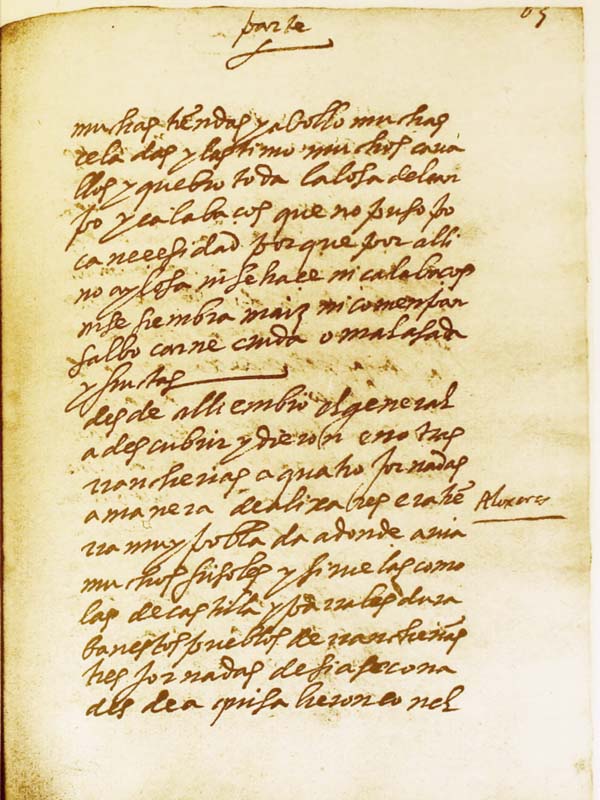 parte
65
muchas tiendas y abollo muchas
celadas y lastimo muchos cava
llos y quebro toda la losa del can
po y calabaços que no puso po
ca necesidad porque por alli
no ay losa ni se hace ni calabaços
ni se siembra maiz ni comen pan
salbo carne cruda o mal asada
y fructas
desde alli embio el general
a descubrir y dieron en otras
rrancherias a quatro jornadas
a manera de alixares era tie
Alixares
rra muy poblada adonde avia
muchos frisoles y siruelas como
las de castilla y parrales dura
ban estos pueblos de rrancherias
tres jornadas desiase cona
desde aqui salieron con el